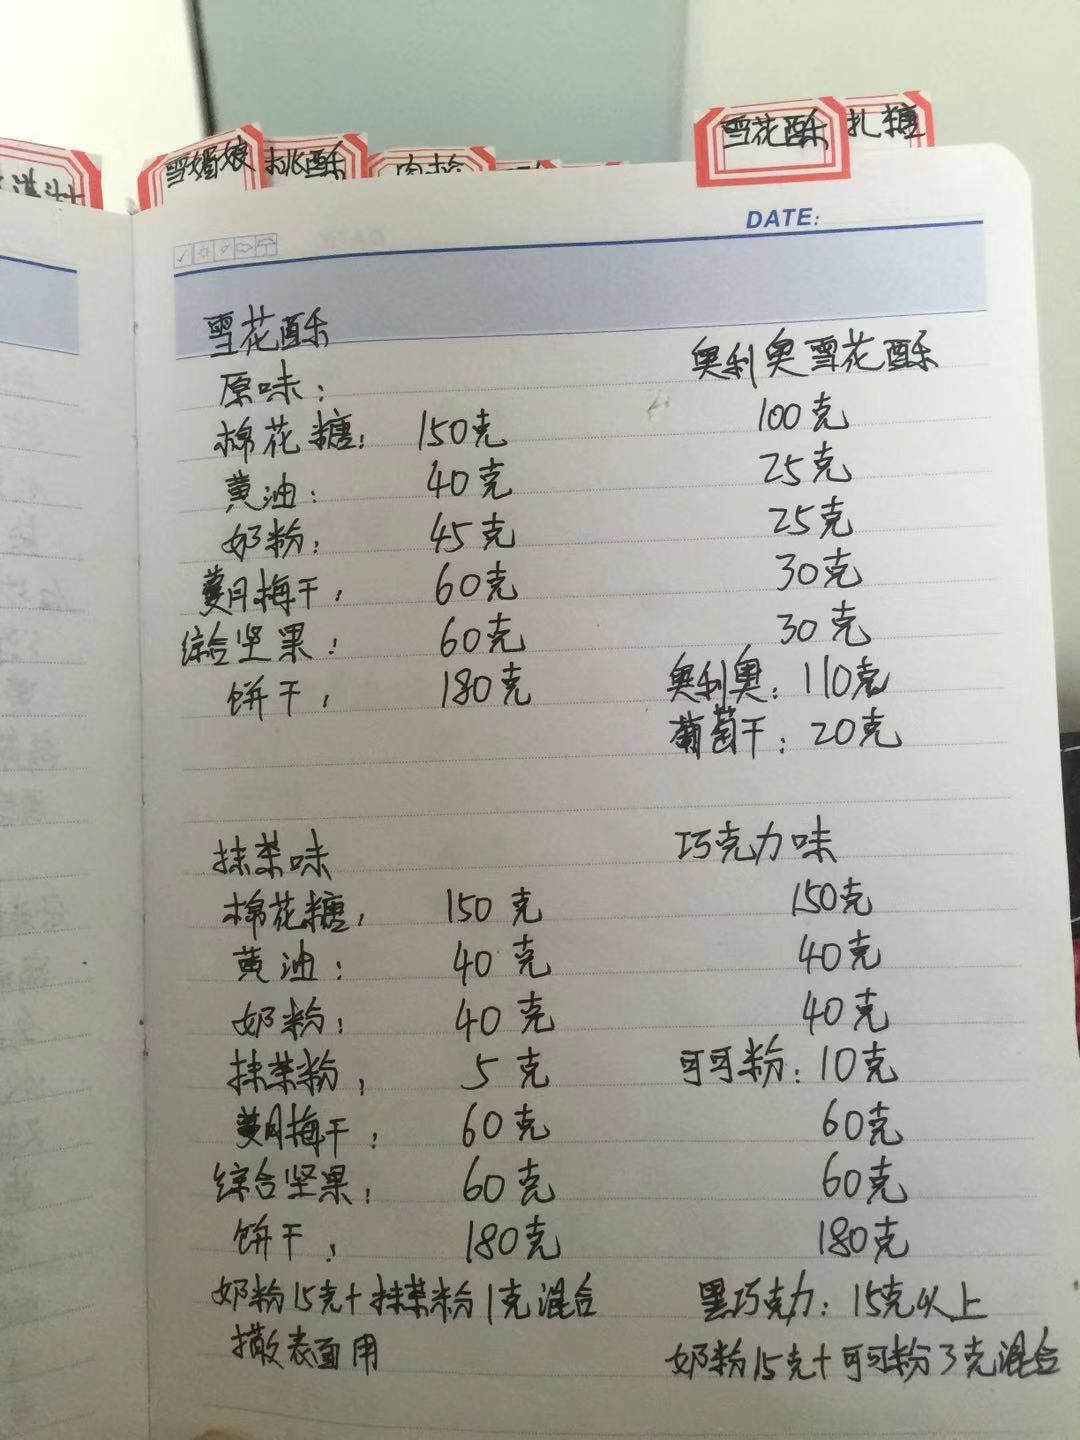 雪花酥 扎糖
雪媚娘 桃酥 肉松
DATE:
雪花酥
原味: 奥利奥雪花酥
棉花糖: 150克 100克
黄油: 40克 25克
奶粉: 45克 25克
蔓月梅干, 60克 30克
综合坚果: 60克 30克
饼干, 180克 奥利奥: 110克
葡萄干: 20克
抹茶味 巧克力味
棉花糖, 150克 150克
黄油: 40克 40克
奶粉: 40克 40克
抹茶粉, 5克 可可粉: 10克
蔓月梅干: 60克 60克
综合坚果, 60克 60克
饼干, 180克 180克
奶粉15克+抹茶粉1克混合 黑巧克力: 15克以上
撒表面用 奶粉15克+可可粉3克混合